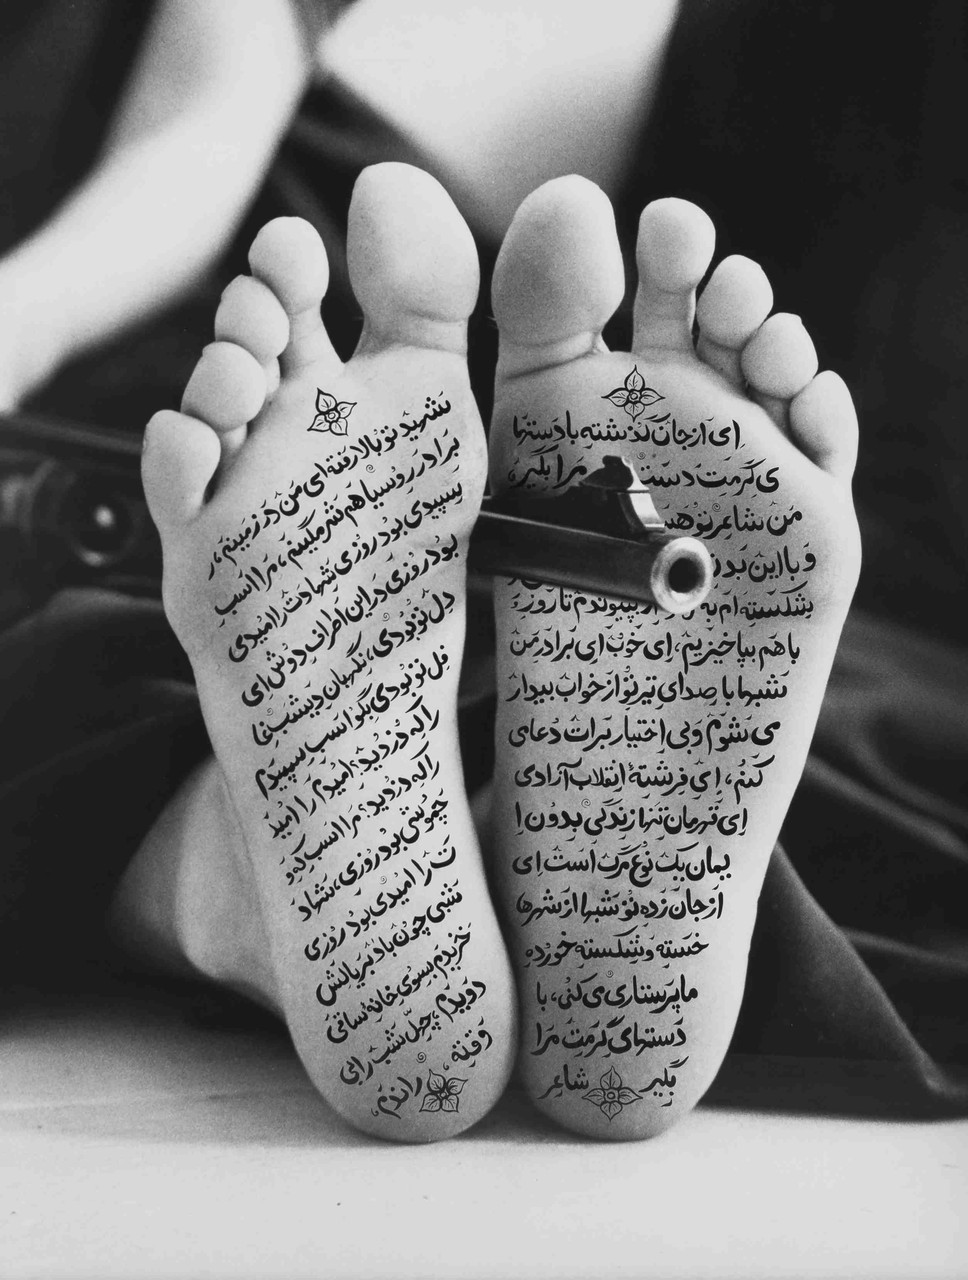 ای ازجان گذشته با دستها
ی گرمت دست مرا بگیر،
من شاعر تو هس
و با این بدن
شکسته‌ام به از پیوندم تا روز
با هم بپاخیزیم، ای خوب ای برادر من
شبها با صدای تیر تو از خواب بیدار
ی شوم و بی اختیار برات دعای
کنم، ای فرشتهٔ انقلاب آزادی
ای قهرمان تنها زندگی بدون ا
یمان یک نوع مرگ است ای
از جان زده تو شبها از شهرها
خسته و شکسته خورده
ما پرستاری ی کنی، با
دستهای گرمت مرا
بگیر شاعر
شهید تو بالا رفته ای من در زمینم، ر
برادر روسیاهم شرمگینم، مرا اسب
سپیدی بود روزی شهادت را امیدی
بود روزی در این اطراف دوش ای
دل تو بودی، نگهبان دیشب
فل تو بودی بگو اسب سپیدم
را که دزدید؟ امیدم را امید
را که دزدید؟ مرا اسب که و
چموشی بود روزی، شهاد
ت را امیدی بود روزی
شبی چون باد بر یالش
خزیدم بسوی خانهٔ ساقی
دویدم، چهل شب را بی
وقفه، راندم،